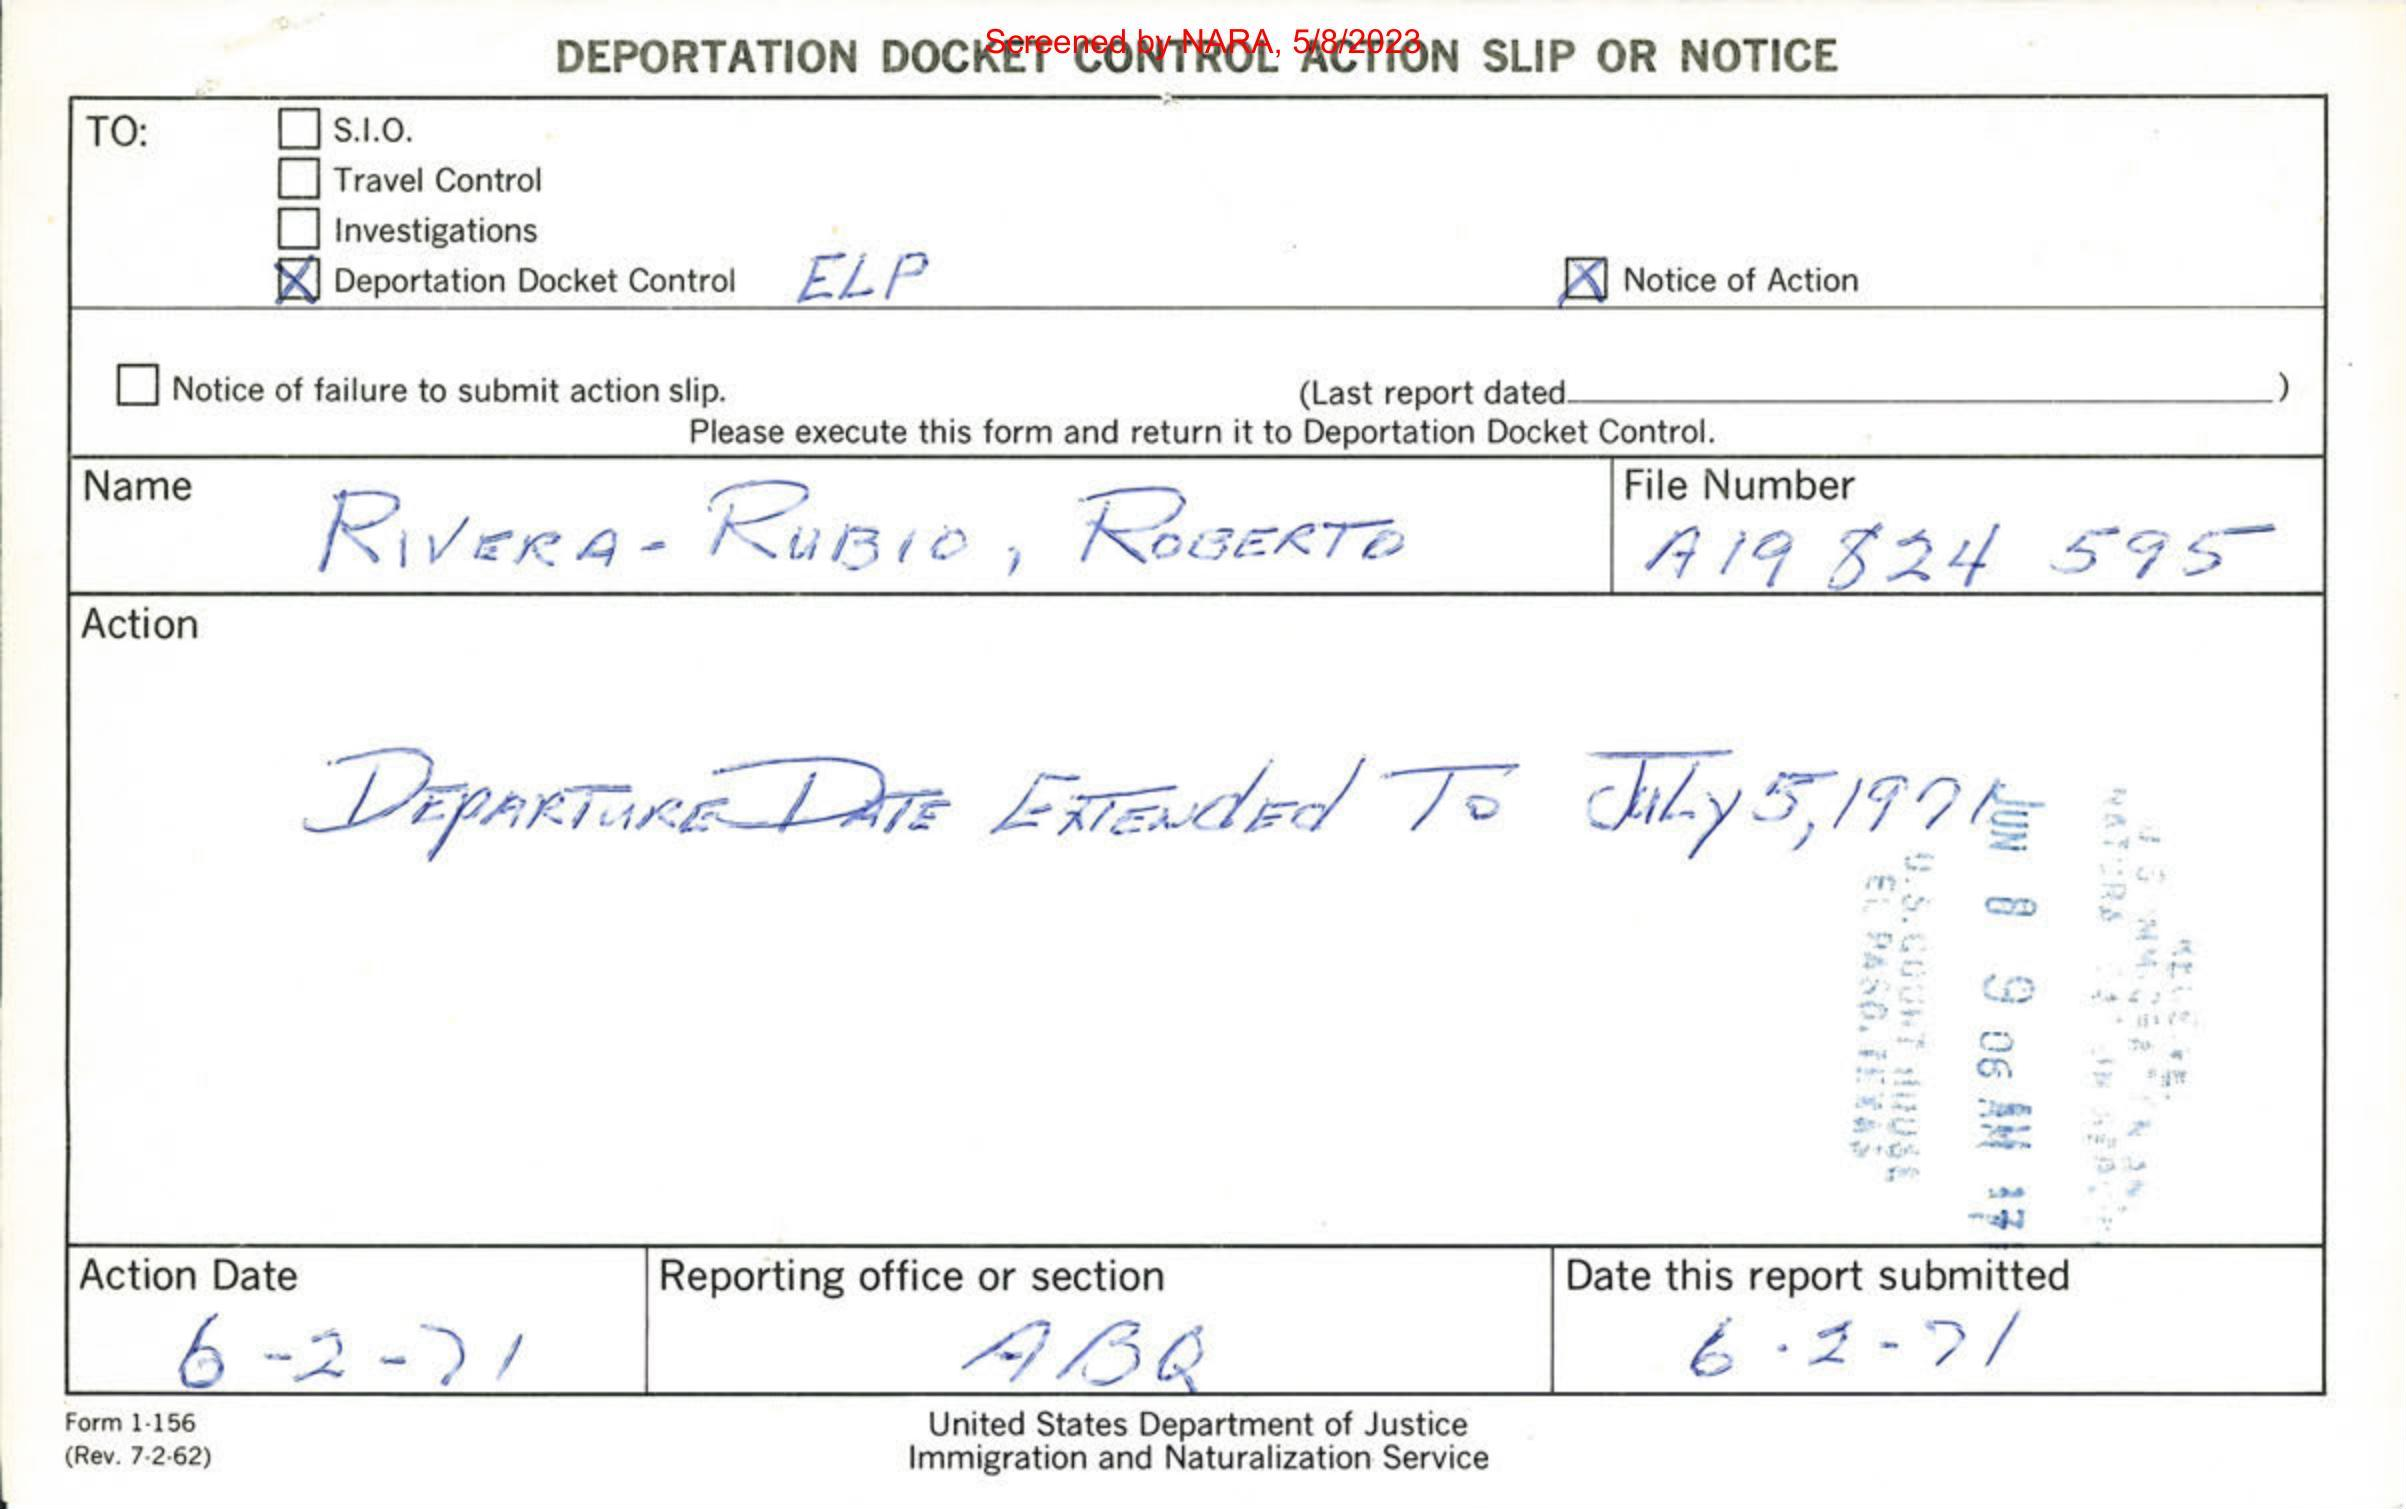 Screened by NARA, 5/8/2023
DEPORTATION DOCKET CONTROL ACTION SLIP OR NOTICE
TO:
S.I.O.
Travel Control
Investigations
Deportation Docket Control ELP
Notice of Action
Notice of failure to submit action slip. (Last report dated )
Please execute this form and return it to Deportation Docket Control.
Name
RIVERA-RUBIO, ROBERTO
File Number
A19 824 595
Action
DEPARTURE DATE EXTENDED TO JULY 5, 1971
JUN 8 9 06 AM '71
U.S. COURT HOUSE
EL PASO, TEXAS
Action Date
6-2-71
Reporting office or section
ABQ
Date this report submitted
6-2-71
Form 1-156
(Rev. 7-2-62)
United States Department of Justice
Immigration and Naturalization Service